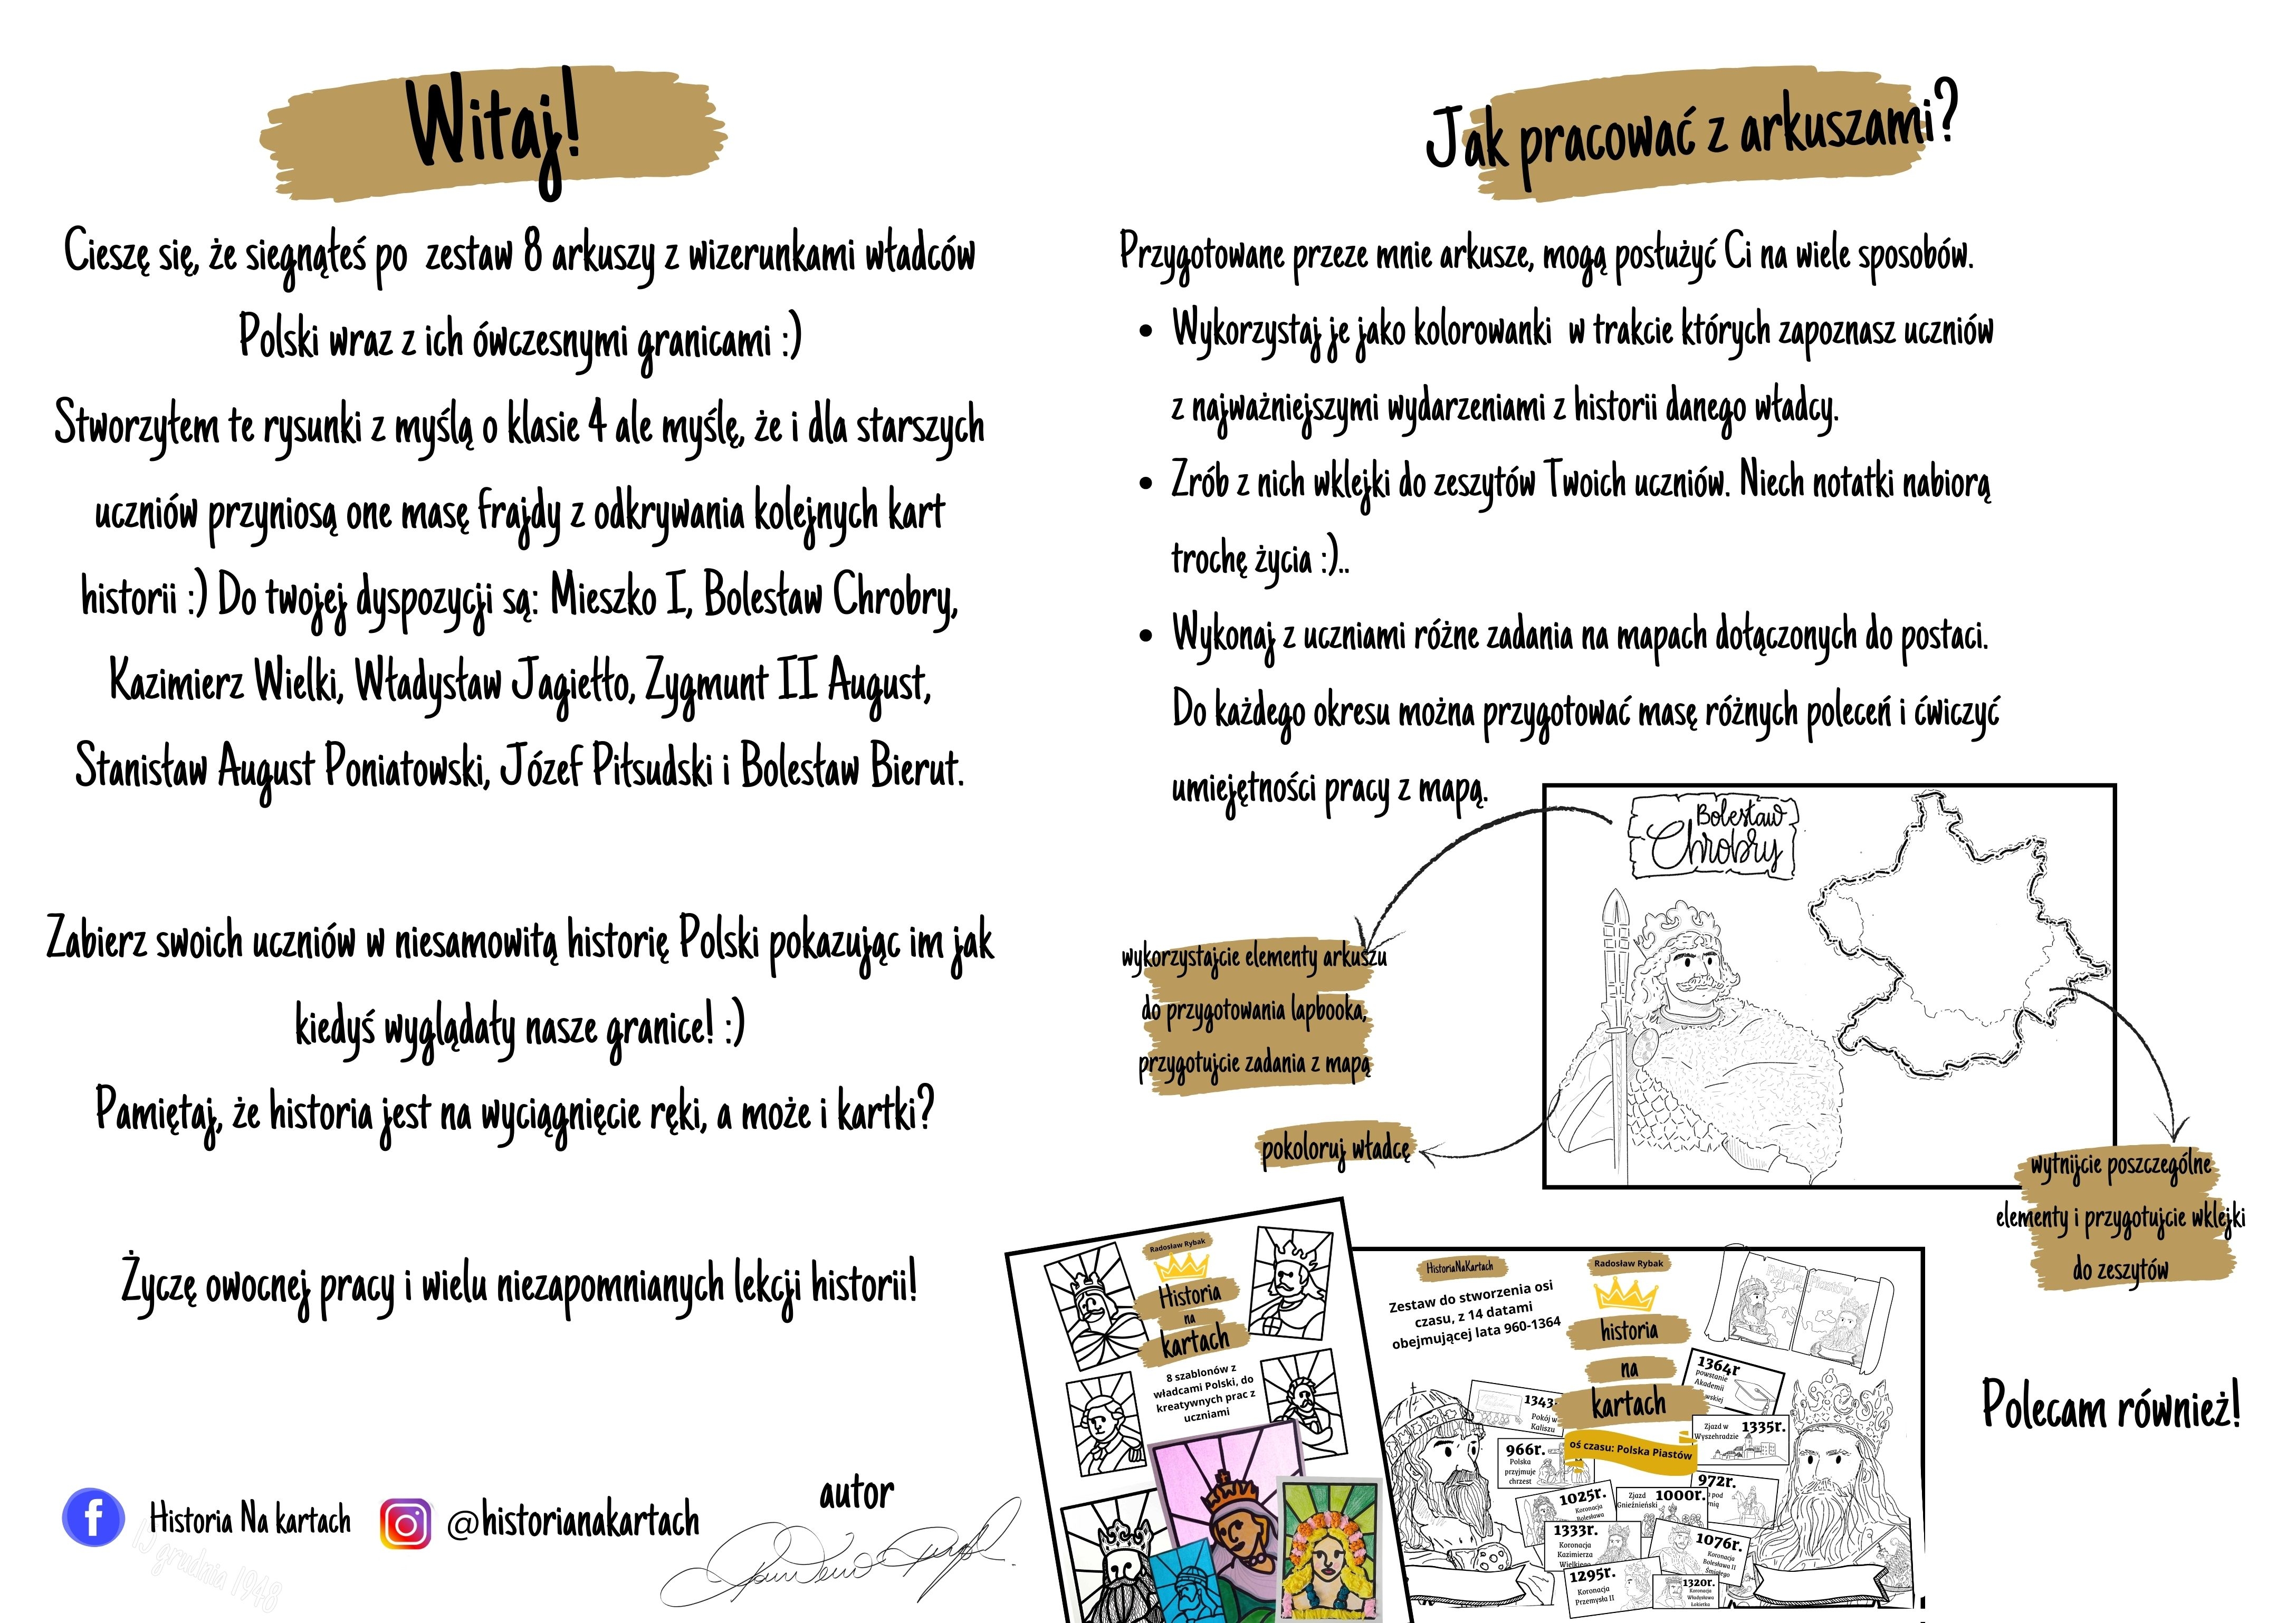 Witaj!
Cieszę się, że siegnąłeś po zestaw 8 arkuszy z wizerunkami władców
Polski wraz z ich ówczesnymi granicami :)
Stworzyłem te rysunki z myślą o klasie 4 ale myślę, że i dla starszych
uczniów przyniosą one masę frajdy z odkrywania kolejnych kart
historii :) Do twojej dyspozycji są: Mieszko I, Bolesław Chrobry,
Kazimierz Wielki, Władysław Jagiełło, Zygmunt II August,
Stanisław August Poniatowski, Józef Piłsudski i Bolesław Bierut.
Zabierz swoich uczniów w niesamowitą historię Polski pokazując im jak
kiedyś wyglądały nasze granice! :)
Pamiętaj, że historia jest na wyciągnięcie ręki, a może i kartki?
Życzę owocnej pracy i wielu niezapomnianych lekcji historii!
Historia Na kartach
@historianakartach
autor
13 grudnia 1948
Jak pracować z arkuszami?
Przygotowane przeze mnie arkusze, mogą posłużyć Ci na wiele sposobów.
• Wykorzystaj je jako kolorowanki w trakcie których zapoznasz uczniów
z najważniejszymi wydarzeniami z historii danego władcy.
• Zrób z nich wklejki do zeszytów Twoich uczniów. Niech notatki nabiorą
trochę życia :)..
• Wykonaj z uczniami różne zadania na mapach dołączonych do postaci.
Do każdego okresu można przygotować masę różnych poleceń i ćwiczyć
umiejętności pracy z mapą.
Bolesław
Chrobry
wykorzystajcie elementy arkuszu
do przygotowania lapbooka,
przygotujcie zadania z mapą
pokoloruj władcę
wytnijcie poszczególne
elementy i przygotujcie wklejki
do zeszytów
Radosław Rybak
Historia
na
kartach
8 szablonów z
władcami Polski, do
kreatywnych prac z
uczniami
HistoriaNaKartach
Zestaw do stworzenia osi
czasu, z 14 datami
obejmującej lata 960-1364
Radosław Rybak
historia
na
kartach
oś czasu: Polska Piastów
1364r
powstanie
Akademii
1343
Pokój w
Kaliszu
Zjazd w
Wyszehradzie
1335r.
966r.
Polska
przyjmuje
chrzest
972r.
pod
1025r.
Koronacja
Bolesława
Zjazd
Gnieźnieński
1000r.
1333r.
Koronacja
Kazimierza
Wielkiego
1076r.
Koronacja
Bolesława II
Śmiałego
1295r.
Koronacja
Przemysła II
1320r.
Koronacja
Władysława
Łokietka
Polecam również!